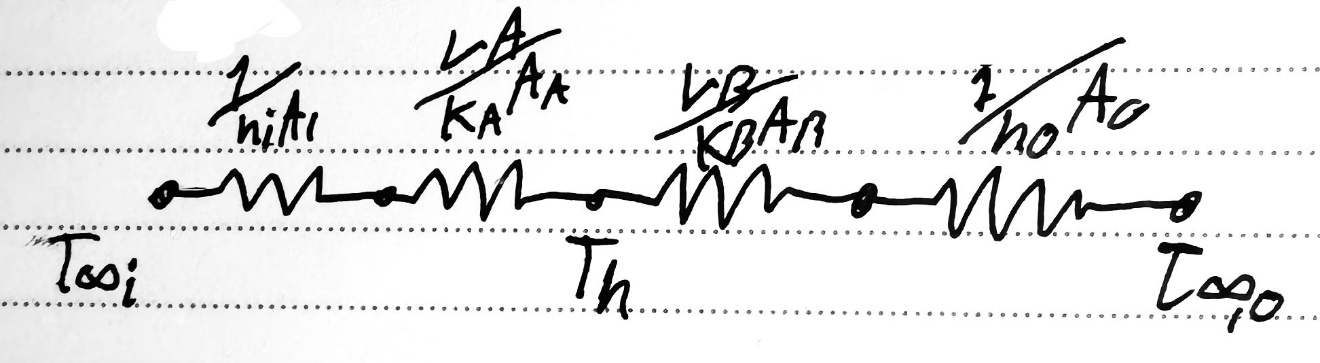 1/hiAi LA/KAAA LB/KBAB 1/hoAo
T∞i Th T∞,o